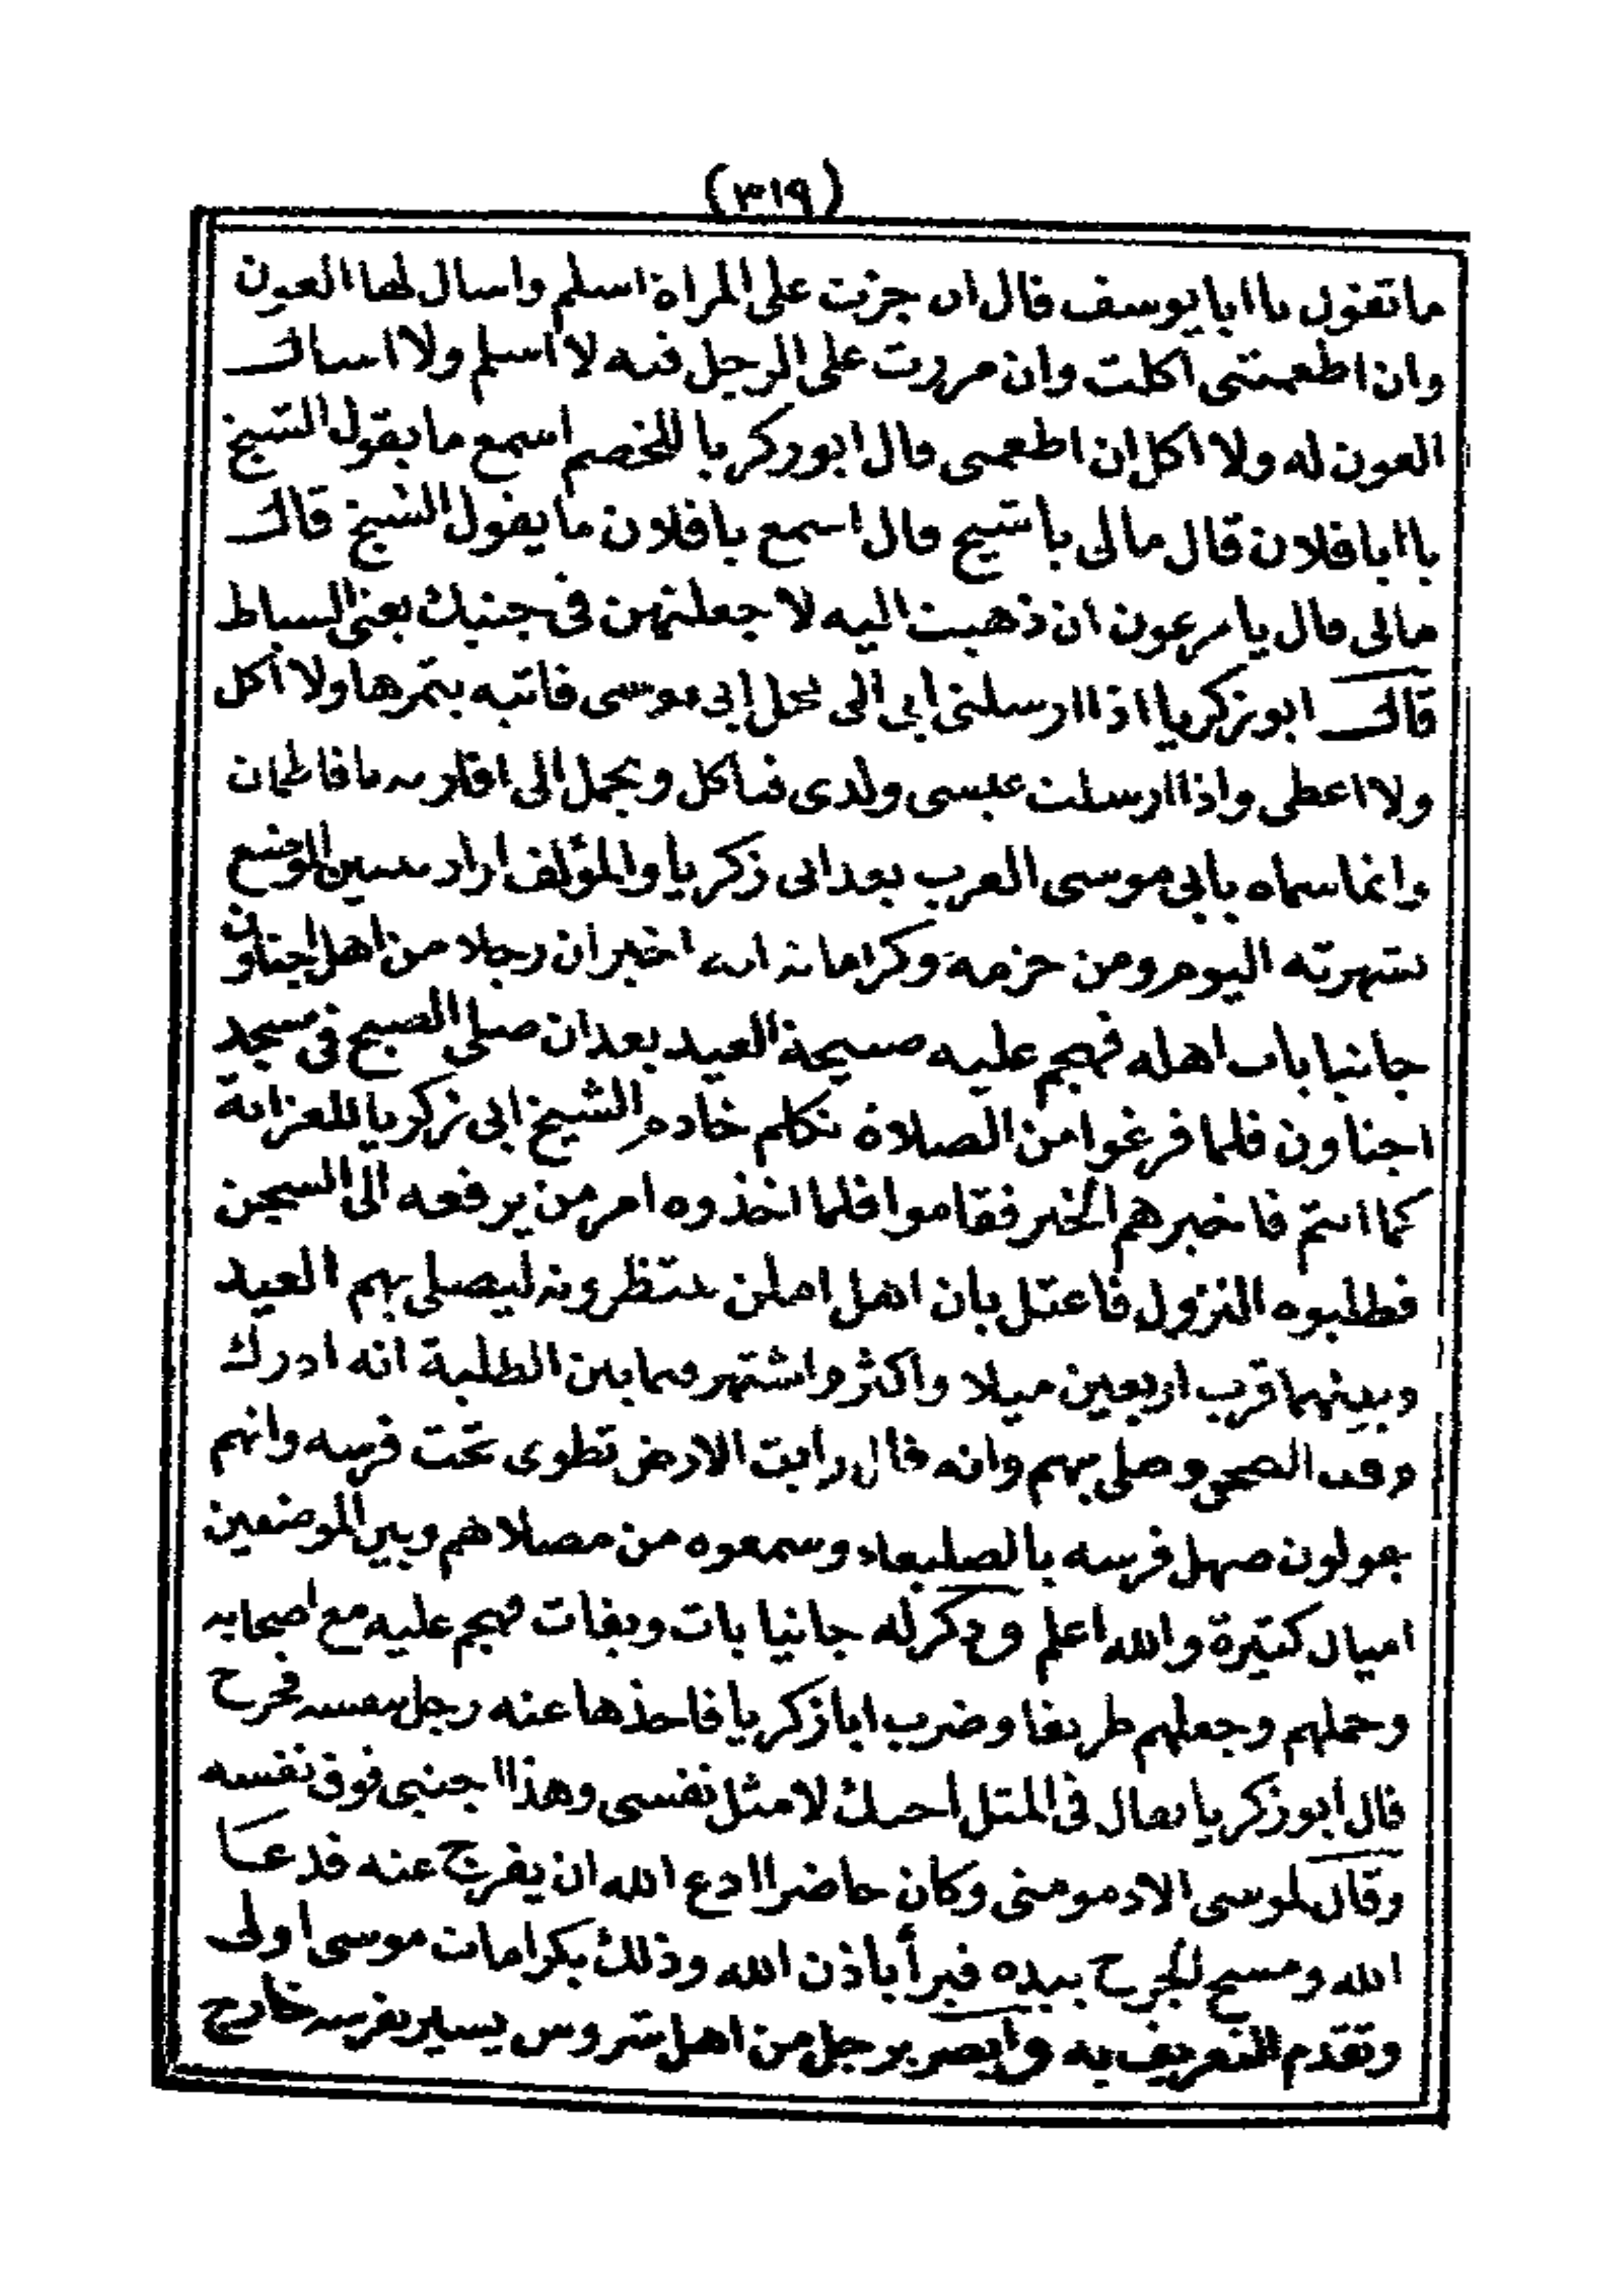 (٣١٩)
ما تقول يا ابا يوسف قال ان جزت على المراة اسلم واسال لها العون
وان اطعمتنى اكلت وان مررت على الرجل فيه لا اسلم ولا اسال
العون له ولا اكل ان اطعمنى قال ابو زكريا للخصم اسمع ما يقول الشيخ
يا ابا فلان قال مالى يا شيخ قال اسمع يا فلان ما يقول الشيخ قال
مالى قال يا فرعون ان ذهبت اليه لاجعلنهن فى جنبيك يعنى السياط
قال ابو زكريا اذا ارسلنى ابى الى نخل ابى موسى فاتيه بتمرها ولا اكل
ولا اعطى واذا ارسلت عيسى ولدى فياكل ويحمل الى
وانما سماه بابى موسى العرب بعد ابى زكريا والمؤلف اراد الموضع
شهرته اليوم ومن حزمه وكراماته انه اخبر ان رجلا من اهل اجناون
جانيا بات اهله فهجم عليه صبيحة العيد بعد ان صلى الصبح فى مسجد
اجناون فلما فرغوا من الصلاة تكلم خادم الشيخ ابى زكريا للعزابة
كما انتم فاخبرهم الخبر فقاموا فلما اخذوه امر من يرفعه الى السجن
فطلبوه النزول فاعتل بان اهل املن ينتظرونه ليصلى بهم العيد
وبينهما قرب اربعين ميلا واكثر واشتهر فيما بين الطلبة انه ادرك
وقت الضحى وصلى بهم وانه قال رايت الارض تطوى تحت فرسه وانهم
يقولون صهل فرسه وسمعوه من مصلاهم وبين الموضعين
اميال كثيرة والله اعلم وذكر له جانيا بات وبغات فهجم عليه مع اصحابه
وحملهم وجعلهم طريقا وضرب ابا زكريا فاخذها عنه رجل بنفسه فجرح
قال ابو زكريا يقال فى المثل احبك لا مثل نفسى وهذا احبنى فوق نفسه
وقال لموسى الادمومنى وكان حاضرا ادع الله ان يفرج عنه فدعا
الله ومسح الجرح بيده فبرأ باذن الله وذلك بكرامات موسى اولى
وتقدم التعريف به وابصر برجل من اهل شروس يسير بفرسه خارج